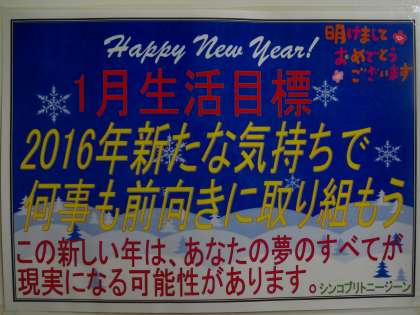 Happy New Year!
明けまして
おめでとう
ございます
1月生活目標
2016年新たな気持ちで
何事も前向きに取り組もう
この新しい年は、あなたの夢のすべてが
現実になる可能性があります。
シンコブリトニージーン